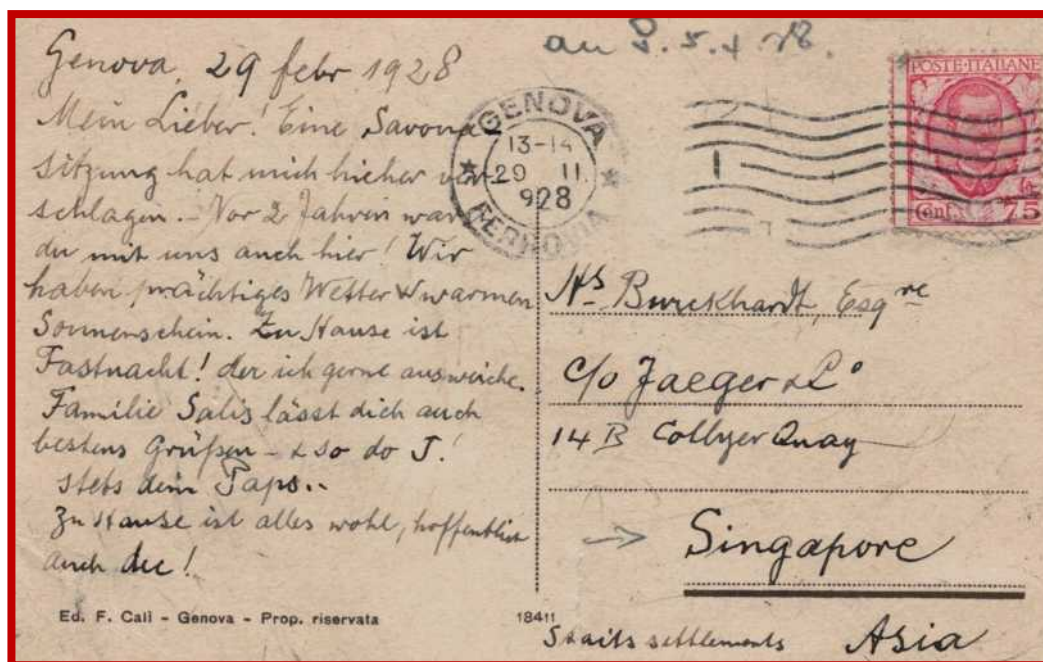 Genova, 29 febr 1928
Mein Lieber! Eine Savona
sitzung hat mich hieher ver-
schlagen. - Vor 2 Jahren warst
du mit uns auch hier! Wir
haben prächtiges Wetter & warmen
Sonnenschein. Zu Hause ist
Fastnacht! der ich gerne ausweiche.
Familie Salis lässt dich auch
bestens Grüßen - & so do I!
stets dein Paps..
Zu Hause ist alles wohl, hoffentlich
auch du!
Ed. F. Cali - Genova - Prop. riservata
18411
an 5.4.28.
GENOVA
13-14
29 II.
928
FERROVIA
POSTE·ITALIANE
Cent. 75
Hs Burckhardt, Esqre
c/o Jaeger & Co
14B Collyer Quay
Singapore
Straits settlements Asia